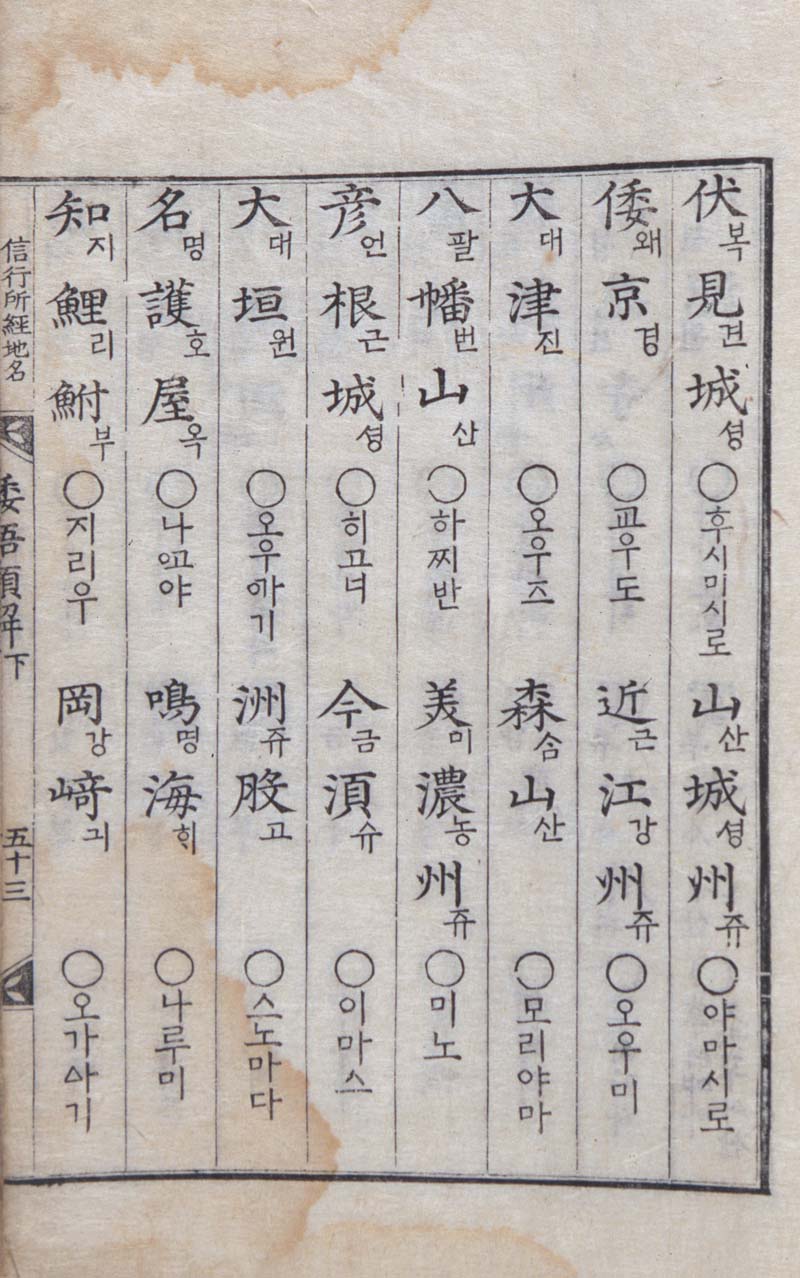 伏복見견城셩○후시미시로 山산城셩州쥬○야마시로
倭왜京경○교우도 近근江강州쥬○오우미
大대津진○오우즈 森솜山산○모리야마
八팔幡번山산○하찌반 美미濃농州쥬○미노
彦언根근城셩○히고녀 今금湏슈○이마스
大대垣원○오우ᅁᅡ기 洲쥬股고○스노마다
名명護호屋옥○나ᅁᅩ야 鳴명海ᄒᆡ○나루미
知지鯉리鮒부○지리우 岡강﨑긔○오가ᅀᅡ기
信行所経地名 倭語類解下 五十三